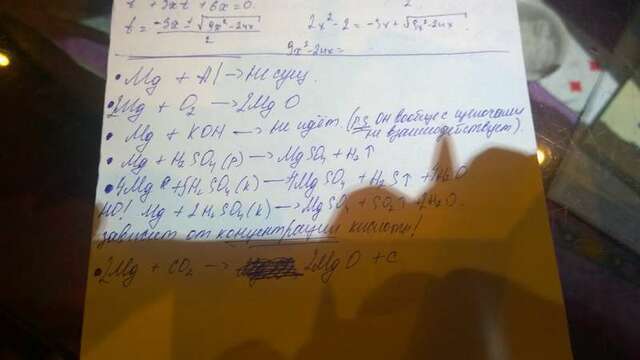 t² + 3xt + 6x = 0.
2
t = -3x ± √9x² - 24x / 2
2x² - 2 = -3x + √9x² - 24x.
9x² - 24x =
• Mg + Al → не сущ.
• 2Mg + O₂ → 2MgO
• Mg + KOH → не идёт. (P.S. Он вообще с щелочами
не взаимодействует).
• Mg + H₂SO₄(р) → MgSO₄ + H₂↑
• 4Mg + 5H₂SO₄(к) → 4MgSO₄ + H₂S↑ + 4H₂O
НО! Mg + 2H₂SO₄(к) → MgSO₄ + SO₂↑ + 2H₂O.
зависит от концентрации кислоты!
• 2Mg + CO₂ → 2MgO + C